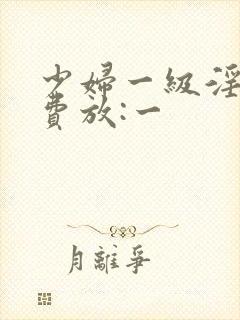 少婦一級淫
費放:一
月離爭